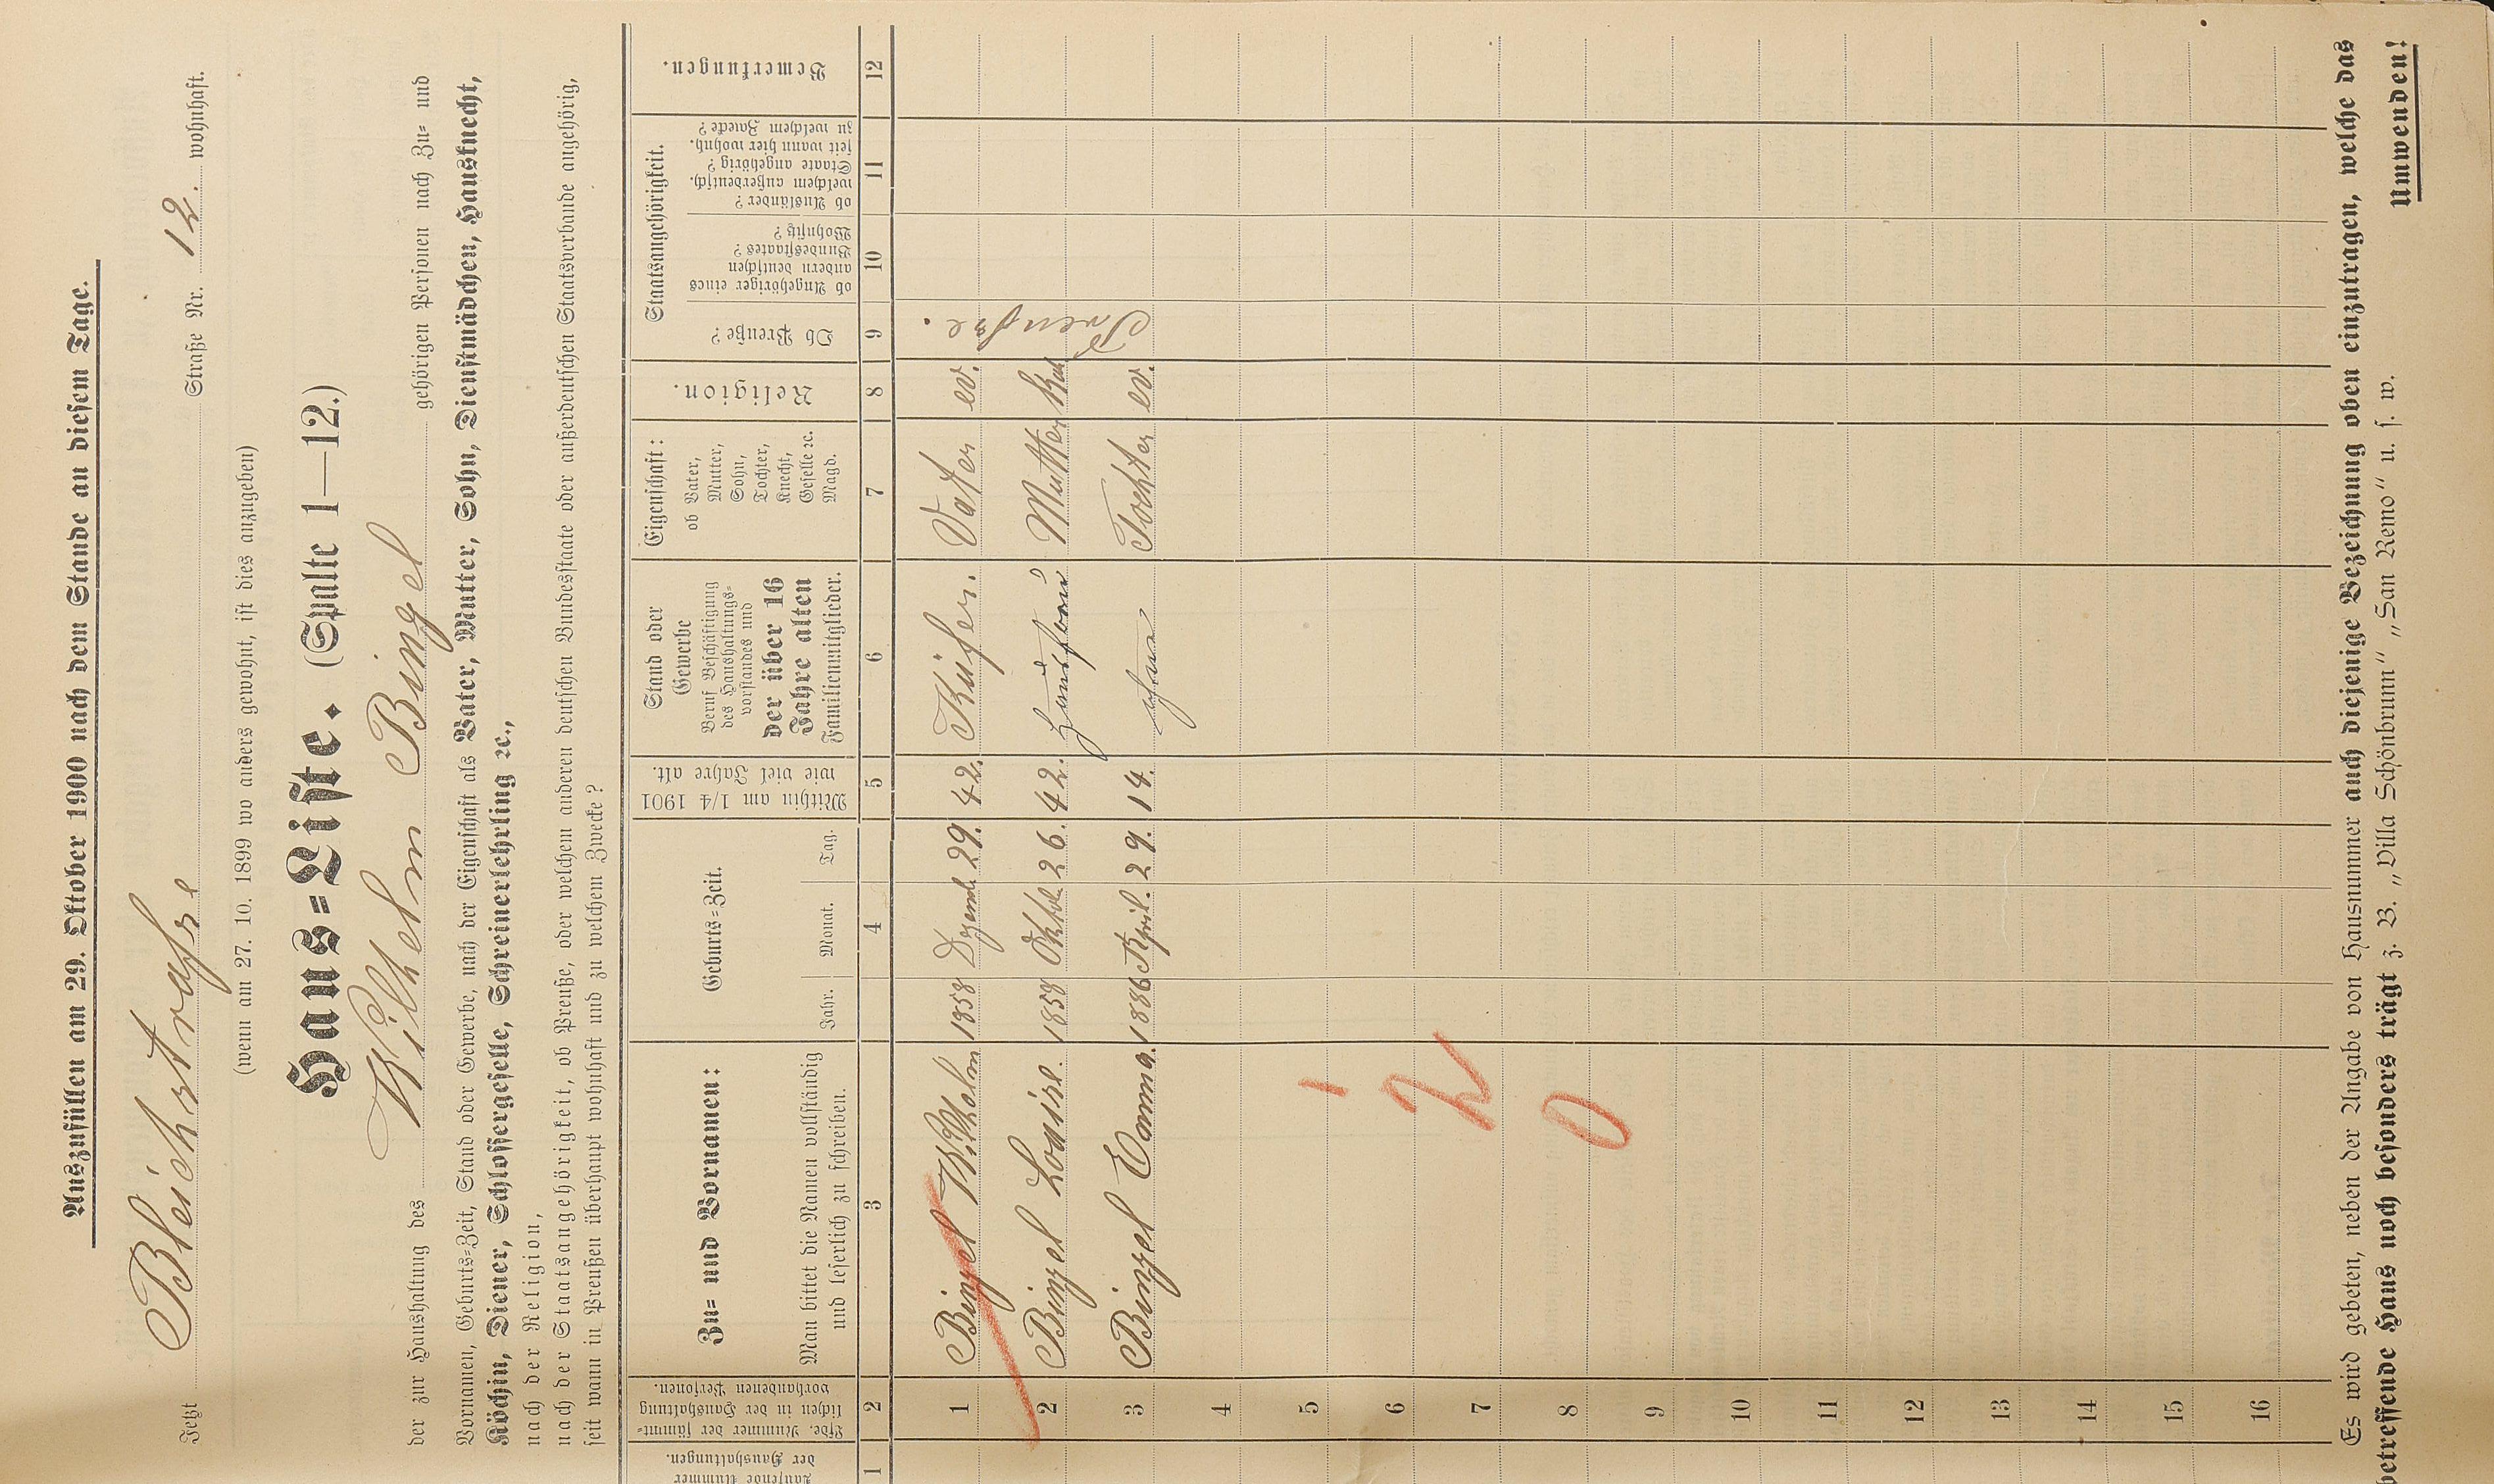 Auszufüllen am 29. Oktober 1900 nach dem Stande an diesem Tage.
Jetzt Bleichstraße Straße Nr. 12. wohnhaft.
(wenn am 27. 10. 1899 wo anders gewohnt, ist dies anzugeben)
Haus=Liste. (Spalte 1—12.)
der zur Haushaltung des Wilhelm Bingel gehörigen Personen nach Zu= und
Vornamen, Geburts=Zeit, Stand oder Gewerbe, nach der Eigenschaft als Vater, Mutter, Sohn, Dienstmädchen, Hausknecht,
Köchin, Diener, Schlossergeselle, Schreinerlehrling ꝛc.,
nach der Religion,
nach der Staatsangehörigkeit, ob Preuße, oder welchem anderen deutschen Bundesstaate oder außerdeutschen Staatsverbande angehörig,
seit wann in Preußen überhaupt wohnhaft und zu welchem Zwecke?
Laufende Nummer
der Haushaltungen.
Lfde. Nummer der sämmt=
lichen in der Haushaltung
vorhandenen Personen.
Zu= und Vornamen:
Man bittet die Namen vollständig
und leserlich zu schreiben.
Geburts=Zeit.
Jahr. Monat. Tag.
Mithin am 1/4 1901
wie viel Jahre alt.
Stand oder
Gewerbe
Beruf Beschäftigung
des Haushaltungs=
vorstandes und
der über 16
Jahre alten
Familienmitglieder.
Eigenschaft:
ob Vater,
Mutter,
Sohn,
Tochter,
Knecht,
Geselle ꝛc.
Magd.
Religion.
Staatsangehörigkeit.
Ob Preuße?
ob Angehöriger eines
andern deutschen
Bundesstaates?
Wohnsitz?
ob Ausländer?
welchem außerdeutsch.
Staate angehörig?
seit wann hier wohnh.
zu welchem Zwecke?
Bemerkungen.
1 2 3 4 5 6 7 8 9 10 11 12
1 Bingel Wilhelm 1858 Dezemb. 29. 42. Küfer. Vater ev. Preuße.
2 Bingel Louise. 1858 Oktob. 26. 42. Hausfrau Mutter Kat
3 Bingel Emma. 1886 April. 29. 14. ohne Tochter ev.
4
5 1
6 2
7
8 0
9
10
11
12
13
14
15
16
Es wird gebeten, neben der Angabe von Hausnummer auch diejenige Bezeichnung oben einzutragen, welche das
betreffende Haus noch besonders trägt z. B. „Villa Schönbrunn“ „San Remo“ u. s. w.
Umwenden!